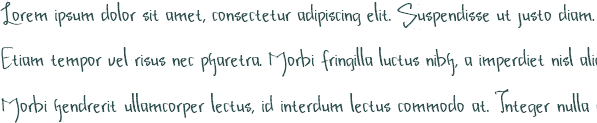 Lorem ipsum dolor sit amet, consectetur adipiscing elit. Suspendisse ut justo diam.
Etiam tempor vel risus nec pharetra. Morbi fringilla luctus nibh, a imperdiet nisl
Morbi hendrerit ullamcorper lectus, id interdum lectus commodo at. Integer nulla